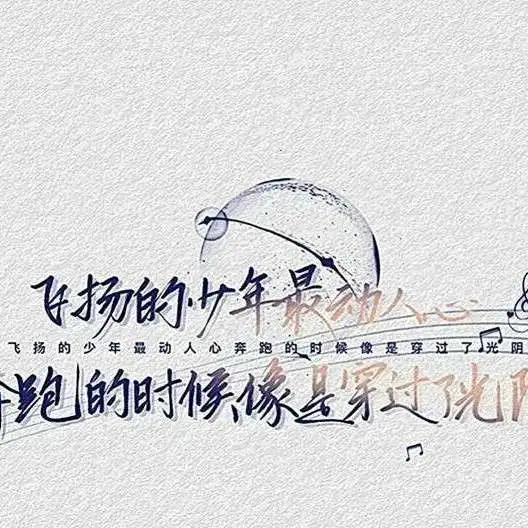 飞扬的少年最动人心
飞扬的少年最动人心奔跑的时候像是穿过了光阴
奔跑的时候像是穿过了光阴